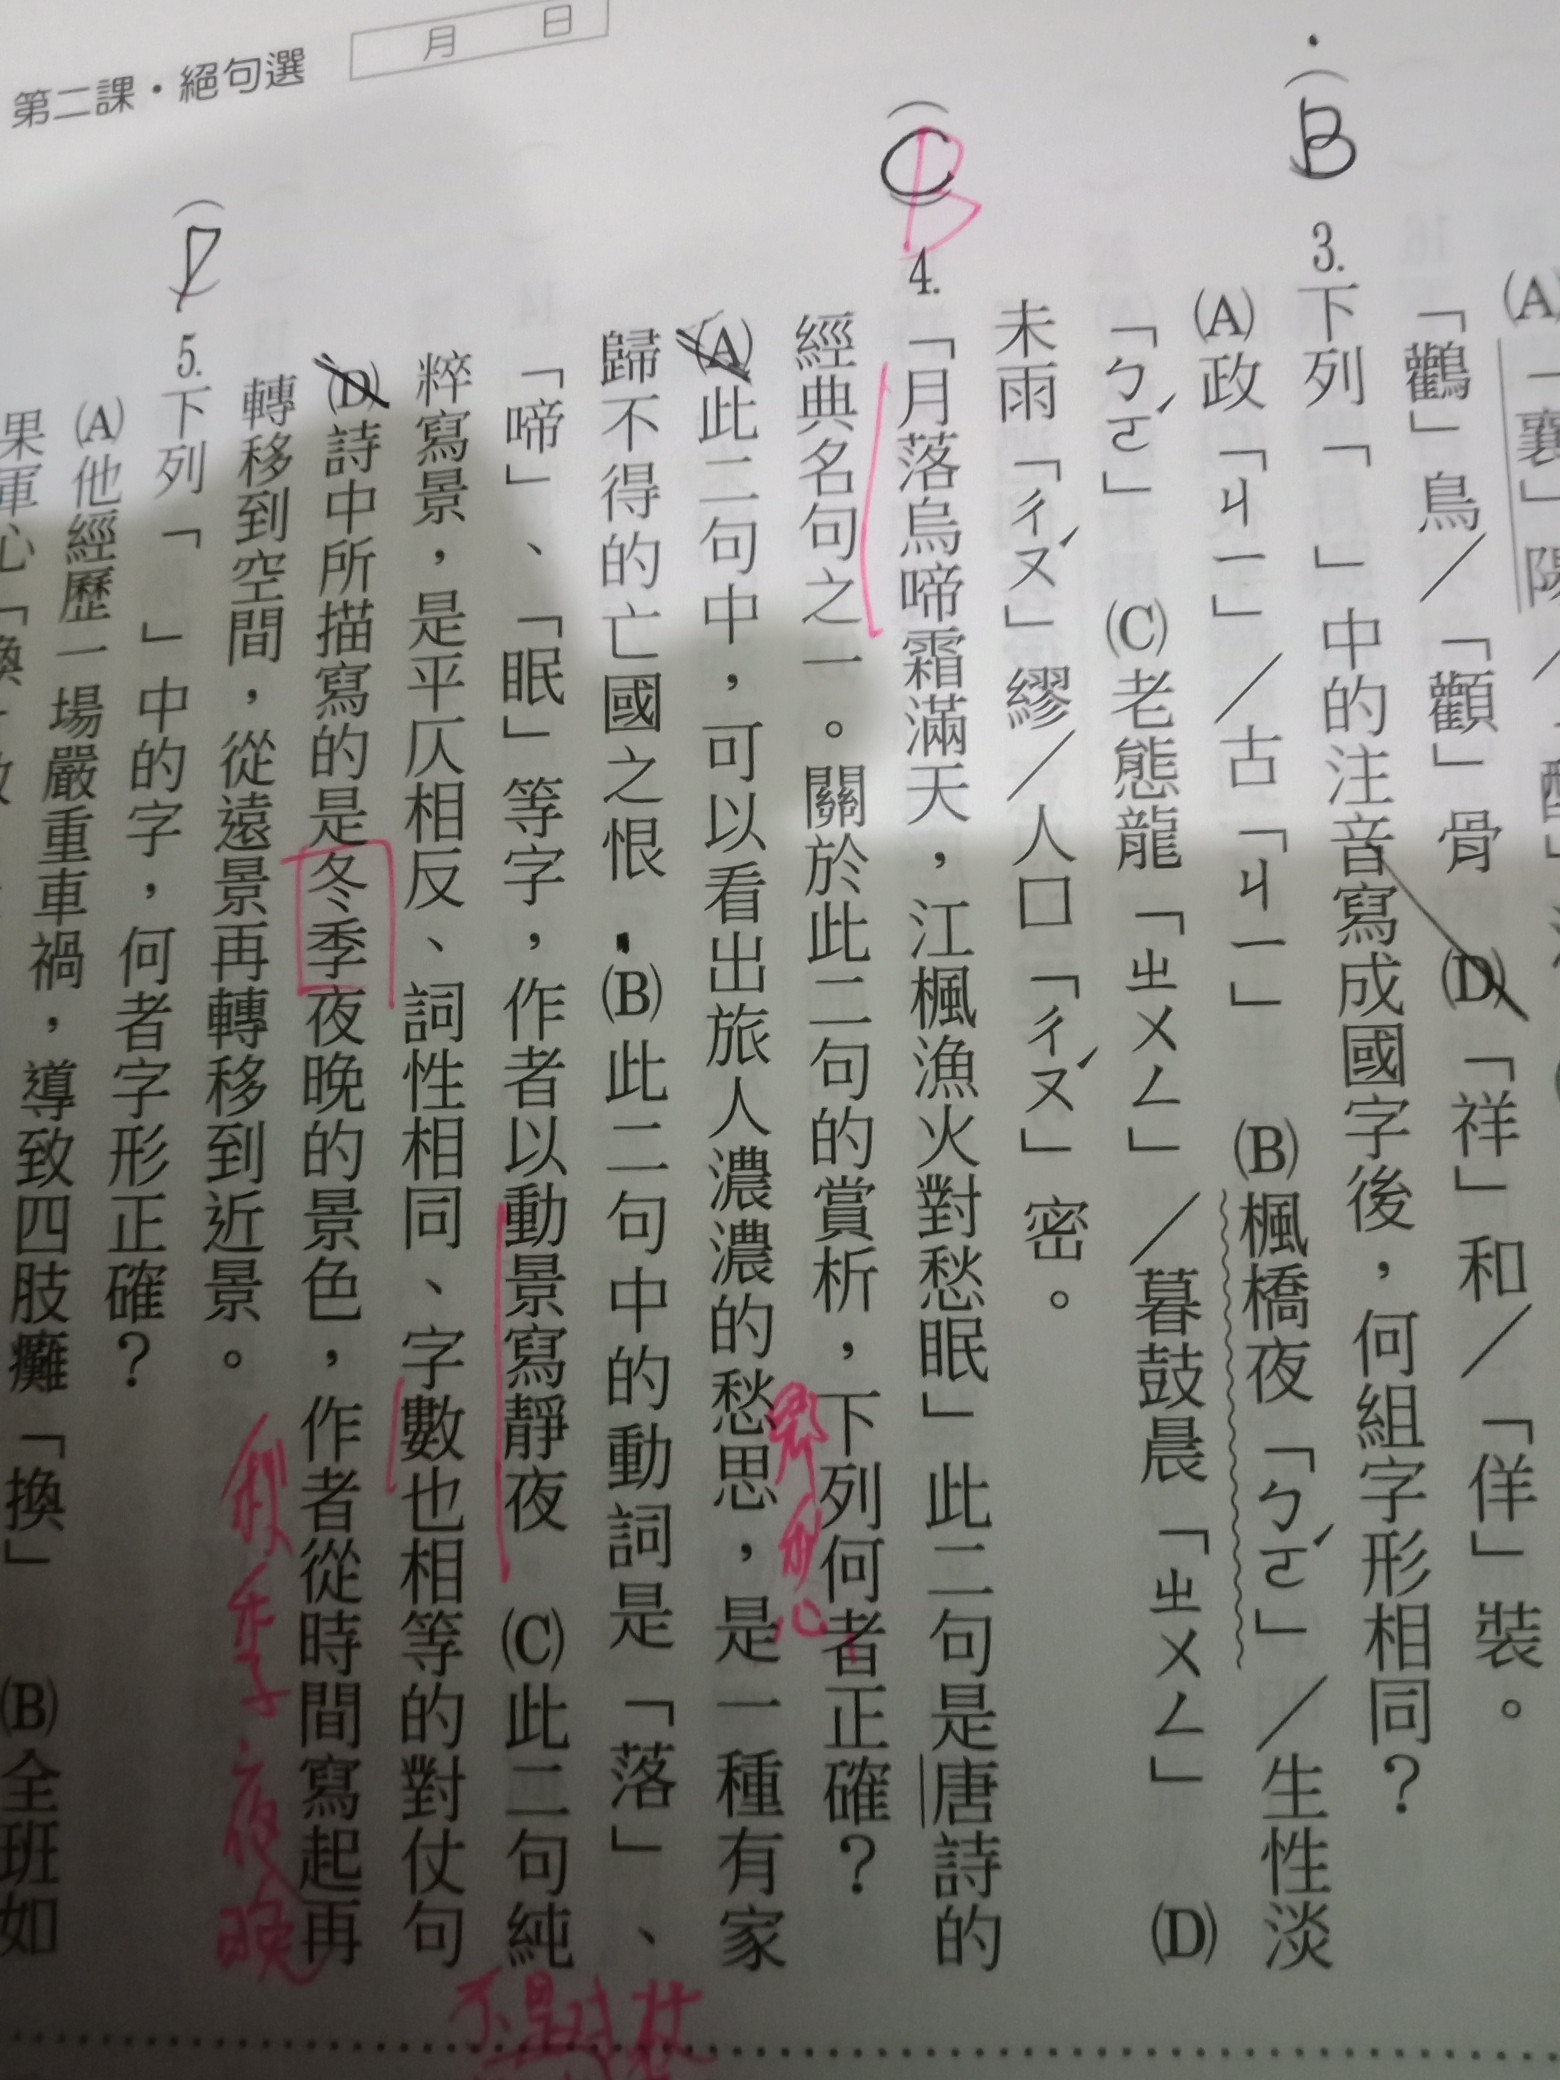 第二課・絕句選
月 日
(A)「襄」陽
「鸛」鳥／「顴」骨 (D)「祥」和／「佯」裝。
(B) 3.下列「 」中的注音寫成國字後，何組字形相同？
(A)政「ㄐㄧ」／古「ㄐㄧ」 (B)楓橋夜「ㄅㄛˊ」／生性淡
「ㄅㄛˊ」 (C)老態龍「ㄓㄨㄥ」／暮鼓晨「ㄓㄨㄥ」 (D)
未雨「ㄔㄡˊ」繆／人口「ㄔㄡˊ」密。
(C) B 4.「月落烏啼霜滿天，江楓漁火對愁眠」此二句是唐詩的
經典名句之一。關於此二句的賞析，下列何者正確？
(A)此二句中，可以看出旅人濃濃的愁思，是一種有家
歸不得的亡國之恨 (B)此二句中的動詞是「落」、
「啼」、「眠」等字，作者以動景寫靜夜 (C)此二句純
粹寫景，是平仄相反、詞性相同、字數也相等的對仗句
不是對杖
(D)詩中所描寫的是冬季夜晚的景色，作者從時間寫起再
轉移到空間，從遠景再轉移到近景。
秋季夜晚
5.下列「 」中的字，何者字形正確？
(A)他經歷一場嚴重車禍，導致四肢癱「換」 (B)全班如
果軍心「渙